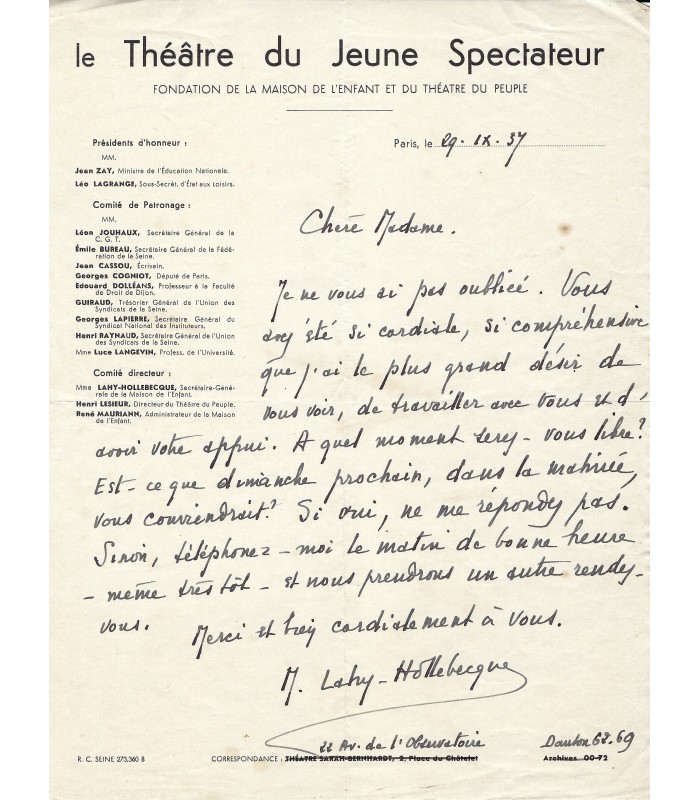 le Théâtre du Jeune Spectateur
FONDATION DE LA MAISON DE L'ENFANT ET DU THÉATRE DU PEUPLE
Présidents d'honneur :
MM.
Jean ZAY, Ministre de l'Éducation Nationale.
Léo LAGRANGE, Sous-Secrét. d'État aux Loisirs.
Comité de Patronage :
MM.
Léon JOUHAUX, Secrétaire Général de la
C. G. T.
Émile BUREAU, Secrétaire Général de la Fédé-
ration de la Seine.
Jean CASSOU, Écrivain.
Georges COGNIOT, Député de Paris.
Edouard DOLLÉANS, Professeur à la Faculté
de Droit de Dijon.
GUIRAUD, Trésorier Général de l'Union des
Syndicats de la Seine.
Georges LAPIERRE, Secrétaire Général du
Syndicat National des Instituteurs.
Henri RAYNAUD, Secrétaire Général de l'Union
des Syndicats de la Seine.
Mme Luce LANGEVIN, Profess. de l'Université.
Comité directeur :
Mme LAHY-HOLLEBECQUE, Secrétaire-Géné-
rale de la Maison de l'Enfant.
Henri LESIEUR, Directeur du Théâtre du Peuple.
René MAURIANN, Administrateur de la Maison
de l'Enfant.
Paris, le 29. IX. 37
Chère Madame.
Je ne vous ai pas oubliée. Vous
avez été si cordiale, si compréhensive
que j'ai le plus grand désir de
vous voir, de travailler avec vous et d'
avoir votre appui. A quel moment serez-vous libre?
Est-ce que dimanche prochain, dans la matinée,
vous conviendrait? Si oui, ne me répondez pas.
Sinon, téléphonez-moi le matin de bonne heure
- même très tôt - et nous prendrons un autre rendez-
vous.
Merci et bien cordialement à vous.
M. Lahy-Hollebecque
22 Av. de l'Observatoire
Danton 62.69
R. C. SEINE 273,360 B
CORRESPONDANCE : THÉATRE SARAH-BERNHARDT, 2, Place du Châtelet
Archives 00-72